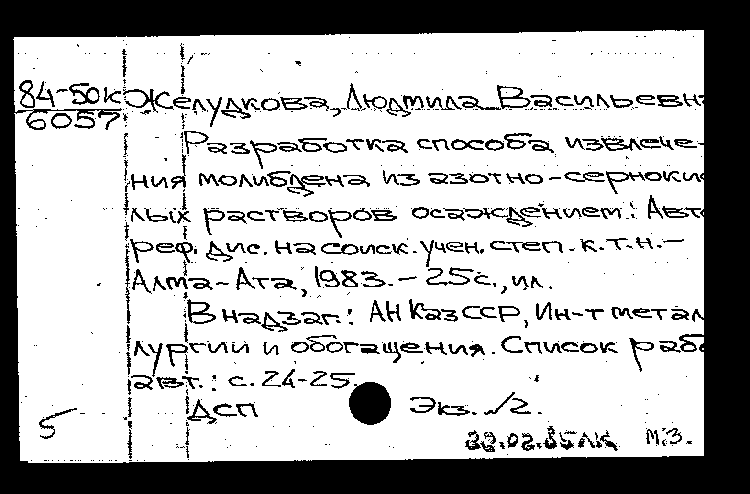 84-50к Желудкова, Людмила Васильевн
6057
Разработка способа извлече-
ния молибдена из азотно-серноки
лых растворов осаждением: Авто
реф. дис. на соиск. учен. степ. к.т.н.-
Алма-Ата, 1983.- 25с., ил.
В надзаг.: АН КазССР, Ин-т метал
лургии и обогащения. Список рабо
авт.: с. 24-25.
ДСП Экз. √2.
5
28.02.85ЛК М.З.